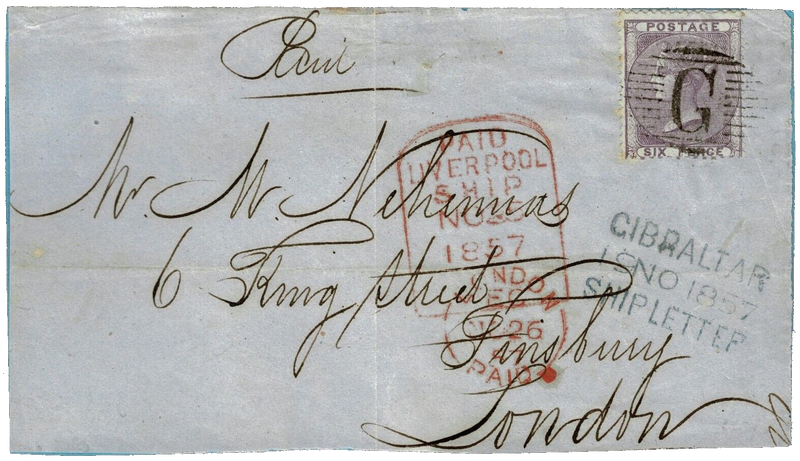 Paid
POSTAGE
G
SIX PENCE
Mr. M. Nehemias
6 King Street
Finsbury
London
PAID
LIVERPOOL
SHIP
NO
1857
LONDON
EC
26
PAID
GIBRALTAR
18 NO 1857
SHIP LETTER